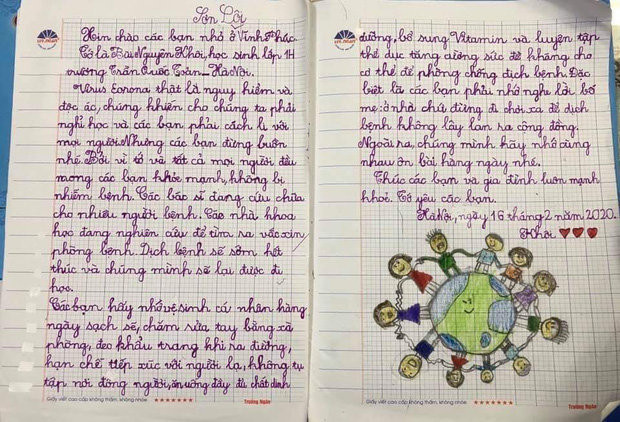 Sơn Lôi
Xin chào các bạn nhỏ ở Vĩnh Phúc.
Tớ là Bùi Nguyên Khôi, học sinh lớp 1H
trường Trần Quốc Toản - Hà Nội.
Virus Corona thật là nguy hiểm và
độc ác, chúng khiến cho chúng ta phải
nghỉ học và các bạn phải cách li với
mọi người. Nhưng các bạn đừng buồn
nhé. Bởi vì tớ và tất cả mọi người đều
mong các bạn khỏe mạnh, không bị
nhiễm bệnh. Các bác sĩ đang cứu chữa
cho nhiều người bệnh. Các nhà khoa
học đang nghiên cứu để tìm ra vắc xin
phòng bệnh. Dịch bệnh sẽ sớm kết
thúc và chúng mình sẽ lại được đi
học.
Các bạn hãy nhớ vệ sinh cá nhân hàng
ngày sạch sẽ, chăm rửa tay bằng xà
phòng, đeo khẩu trang khi ra đường,
hạn chế tiếp xúc với người lạ, không tụ
tập nơi đông người, ăn uống đầy đủ chất dinh
Giấy viết cao cấp không thấm, không nhòe
Trường Ngân
dưỡng, bổ sung Vitamin và luyện tập
thể dục tăng cường sức đề kháng cho
cơ thể để phòng chống dịch bệnh. Đặc
biệt là các bạn phải nhớ nghe lời bố
mẹ: ở nhà chứ đừng đi chơi xa để dịch
bệnh không lây lan ra cộng đồng.
Ngoài ra, chúng mình hãy nhớ cùng
nhau ôn bài hàng ngày nhé.
Chúc các bạn và gia đình luôn mạnh
khoẻ. Tớ yêu các bạn.
Hà Nội, ngày 16 tháng 2 năm 2020.
Khôi
Giấy viết cao cấp không thấm, không nhòe
Trường Ngân